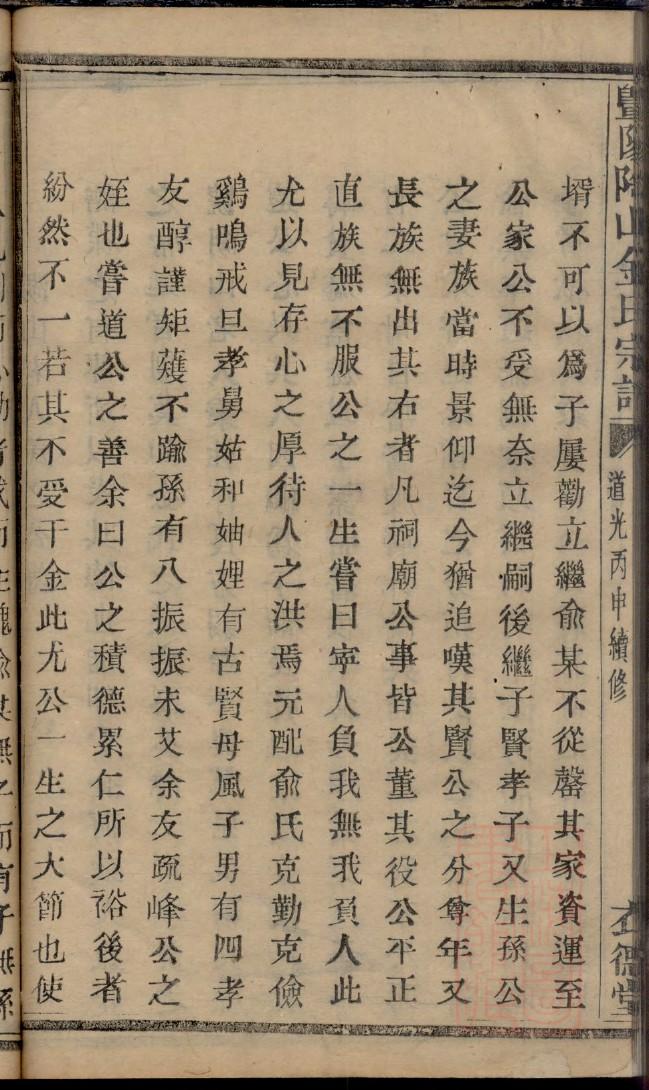 暨陽
山金氏宗譜
道光丙申續修
德堂
壻不可以爲子屢勸立繼俞某不從罄其家資運至
公家公不受無奈立繼嗣後繼子賢孝子又生孫公
之妻族當時景仰迄今猶追嘆其賢公之分尊年又
長族無出其右者凡祠廟公事皆公董其役公平正
直族無不服公之一生嘗曰寧人負我無我負人此
尤以見存心之厚待人之洪焉元配俞氏克勤克儉
鷄鳴戒旦孝舅姑和妯娌有古賢母風子男有四孝
友醇謹矩矱不踰孫有八振振未艾余友疏峰公之
姪也嘗道公之善余曰公之積德累仁所以裕後者
紛然不一若其不受千金此尤公一生之大節也使